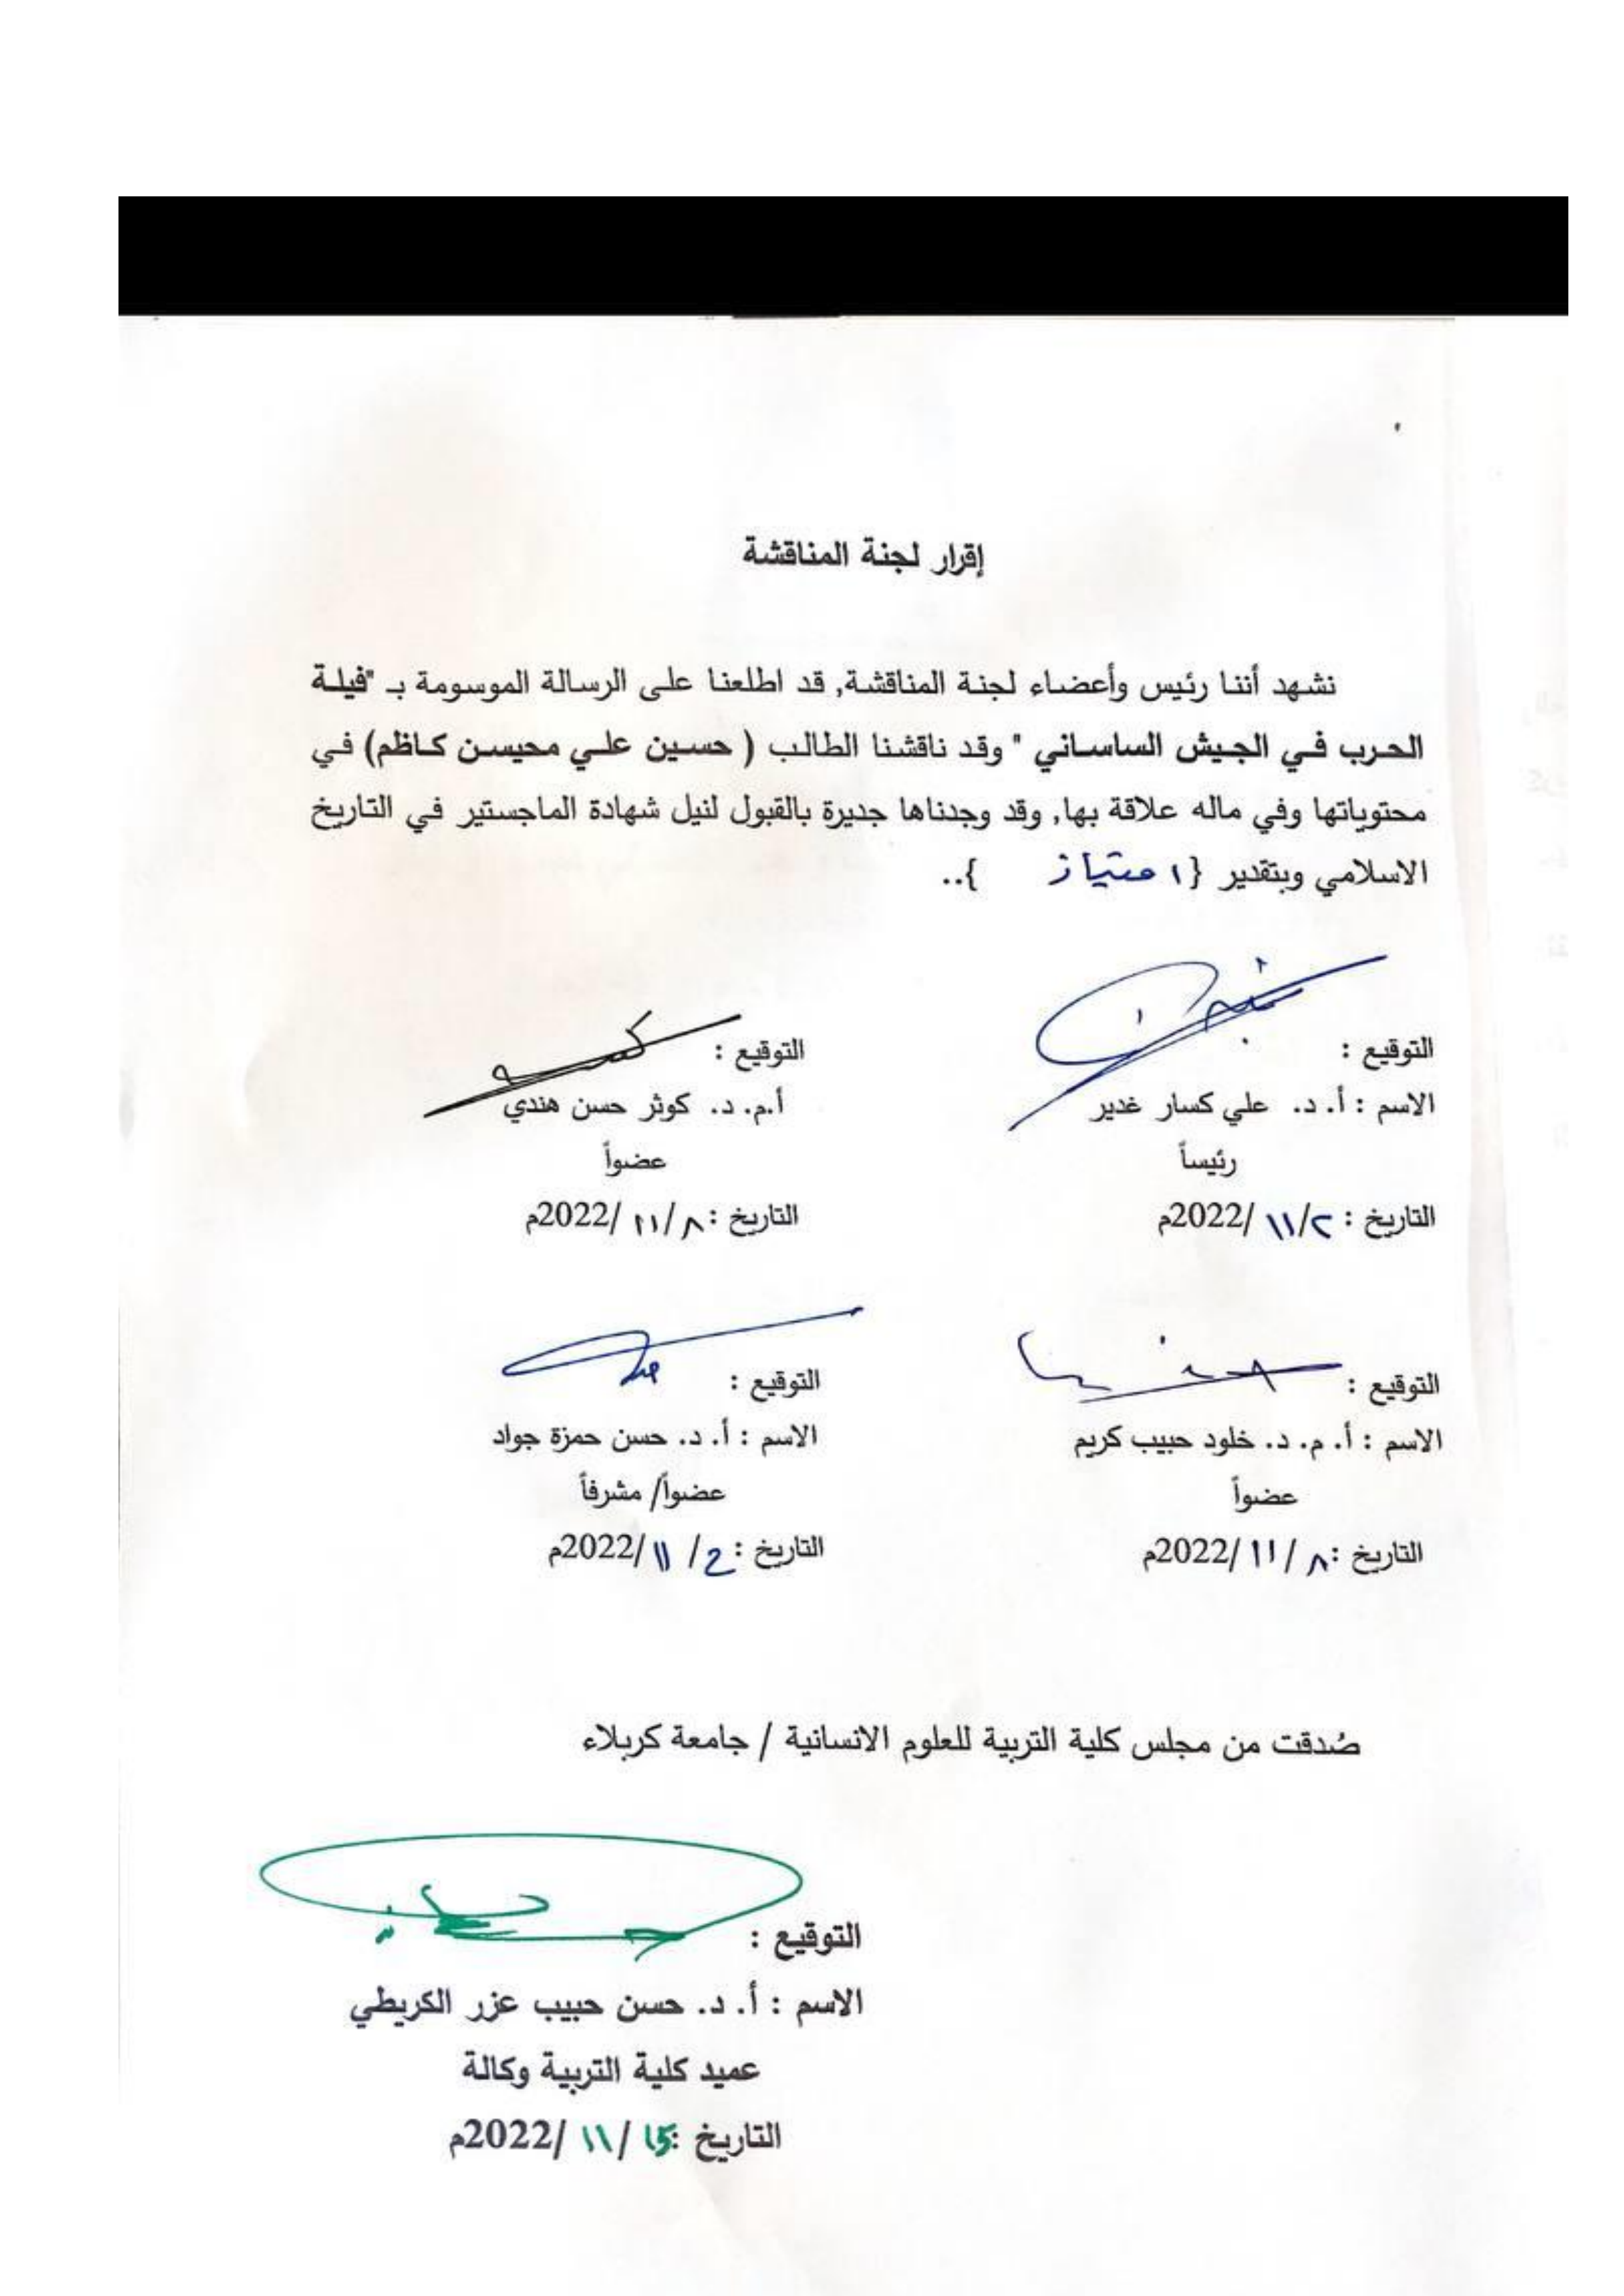 إقرار لجنة المناقشة
نشهد أننا رئيس وأعضاء لجنة المناقشة, قد اطلعنا على الرسالة الموسومة بـ "فيلة
الحرب في الجيش الساساني " وقد ناقشنا الطالب ( حسين علي محيسن كاظم) في
محتوياتها وفي ماله علاقة بها, وقد وجدناها جديرة بالقبول لنيل شهادة الماجستير في التاريخ
الاسلامي وبتقدير {امتياز }..
التوقيع :
الاسم : أ. د. علي كسار غدير
رئيساً
التاريخ : /١١ /2022م
التوقيع :
أ.م. د. كوثر حسن هندي
عضواً
التاريخ :٨/ ١١ /2022م
التوقيع :
الاسم : أ. م. د. خلود حبيب كريم
عضواً
التاريخ :٨ / ١١ /2022م
التوقيع :
الاسم : أ. د. حسن حمزة جواد
عضواً/ مشرفاً
التاريخ : / ١١ /2022م
صُدقت من مجلس كلية التربية للعلوم الانسانية / جامعة كربلاء
التوقيع :
الاسم : أ. د. حسن حبيب عزر الكريطي
عميد كلية التربية وكالة
التاريخ :15 / ١١ /2022م